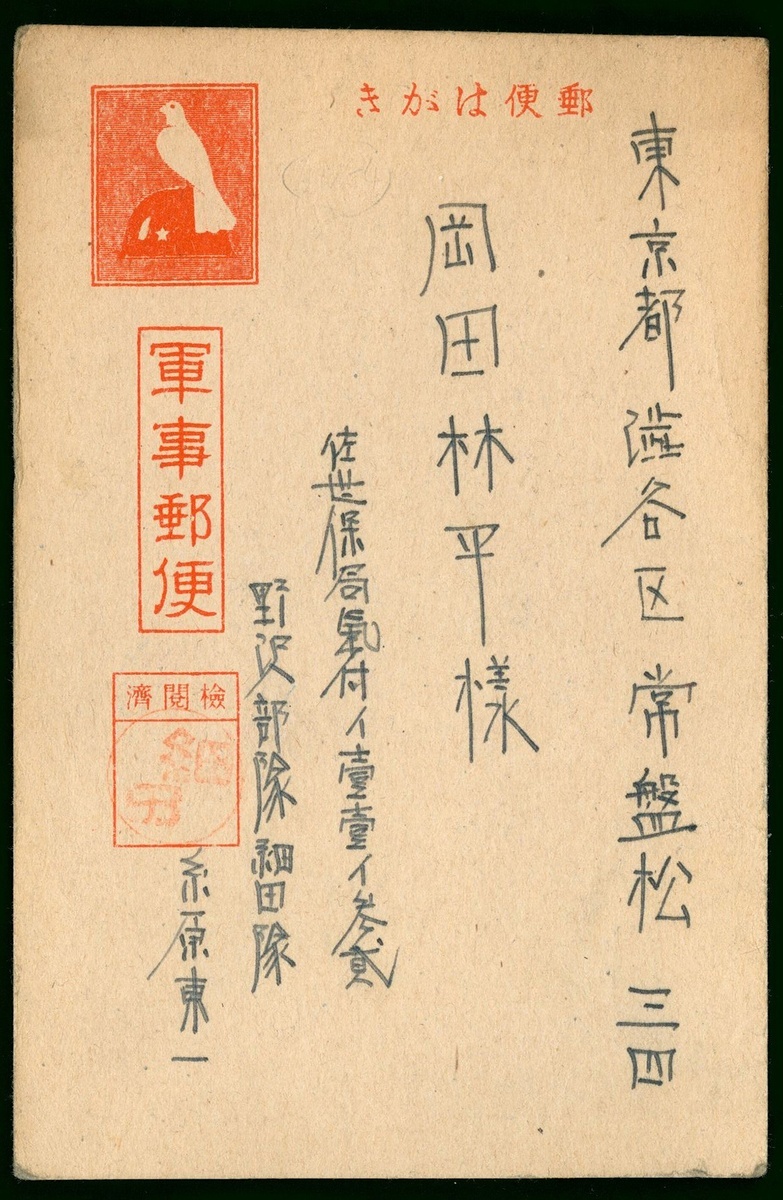 郵便はがき
東京都澁谷区常盤松三四
岡田林平様
佐世保局氣付イ壹壹イ参貳
野沢部隊細田隊
糸原東一
軍事郵便
檢閲濟
細田